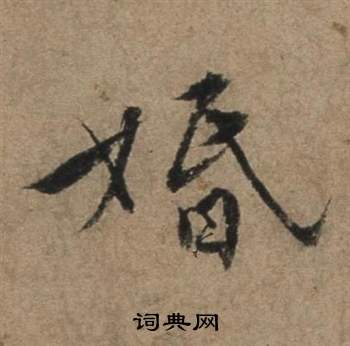 婚
词典网